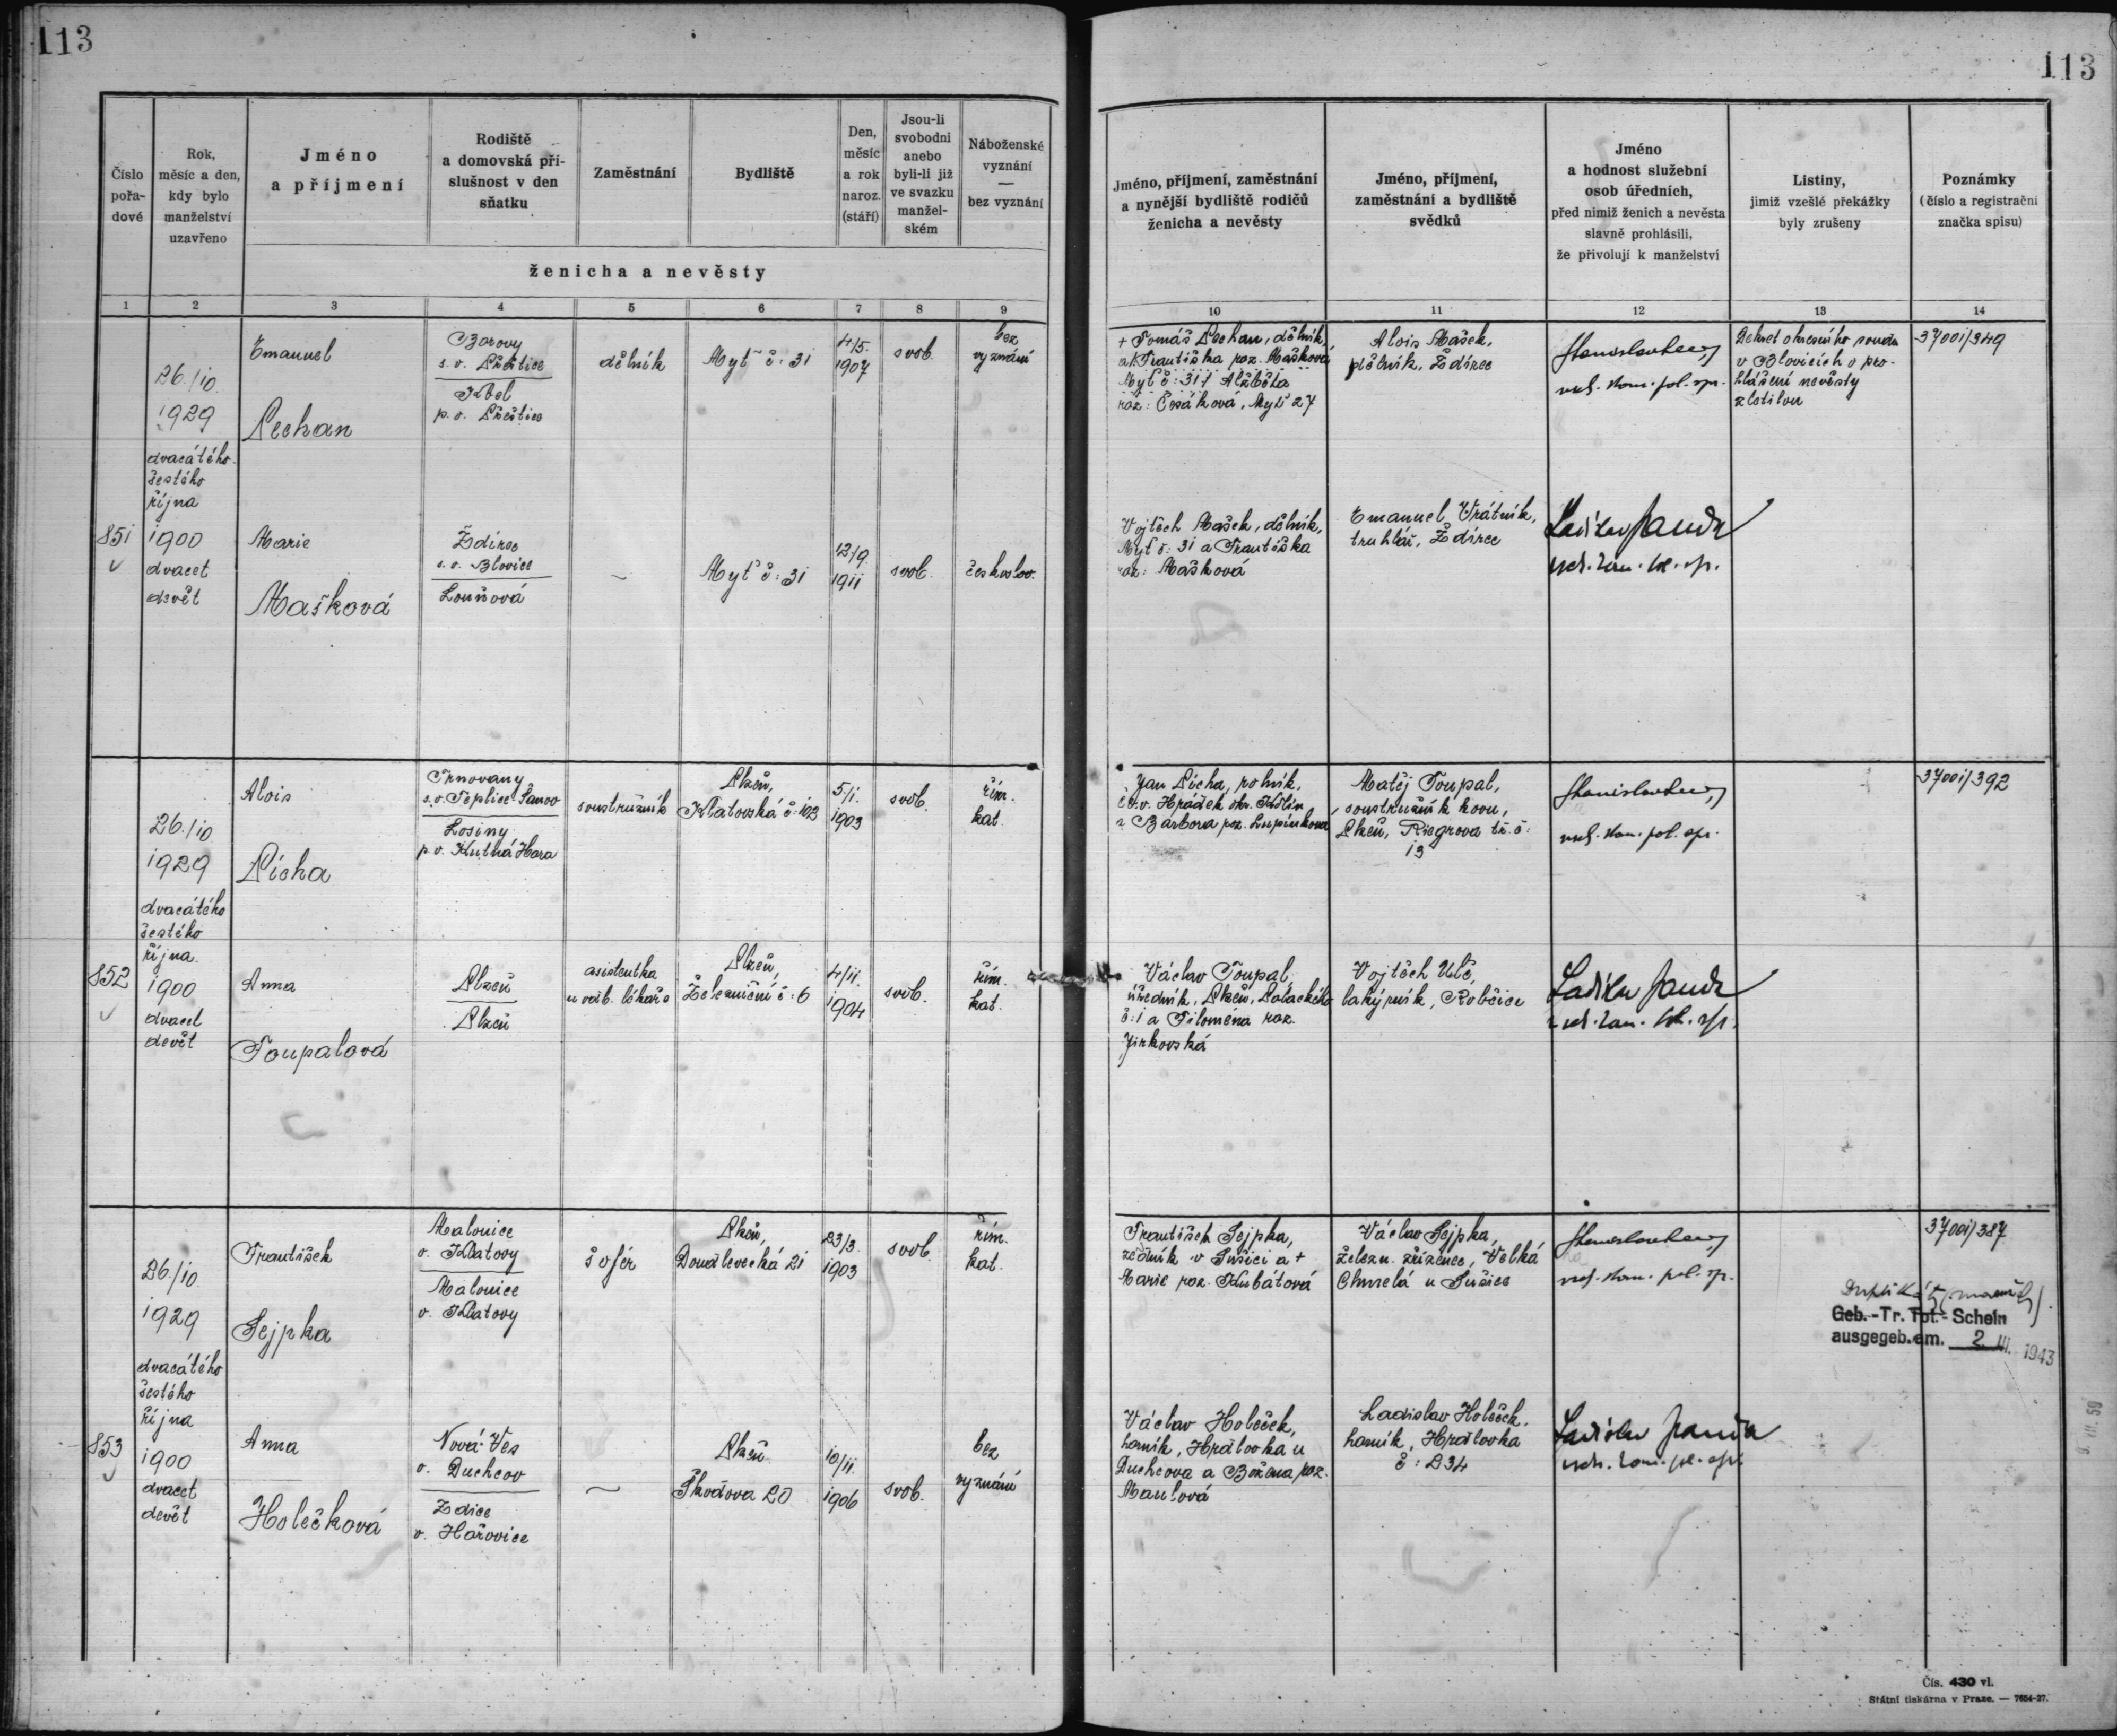 113
113
Číslo pořadové
Rok, měsíc a den, kdy bylo manželství uzavřeno
Jméno a příjmení
Rodiště a domovská příslušnost v den sňatku
Zaměstnání
Bydliště
Den, měsíc a rok naroz. (stáří)
Jsou-li svobodni anebo byli-li již ve svazku manželském
Náboženské vyznání — bez vyznání
ženicha a nevěsty
Jméno, příjmení, zaměstnání a nynější bydliště rodičů ženicha a nevěsty
Jméno, příjmení, zaměstnání a bydliště svědků
Jméno a hodnost služební osob úředních, před nimiž ženich a nevěsta slavně prohlásili, že přivolují k manželství
Listiny, jimiž vzešlé překážky byly zrušeny
Poznámky (číslo a registrační značka spisu)
1 2 3 4 5 6 7 8 9 10 11 12 13 14
851
26./10.
1929
dvacátého
šestého
října
1900
dvacet
devět
Emanuel
Pechan
Borovy
s. o. Přeštice
Kbel
p. o. Přeštice
dělník
Myť č: 31
4/5.
1907
svob.
bez
vyznání
+ Tomáš Pechan, dělník,
a Františka roz. Mašková
Myť č: 31 / Alžběta
roz: Česáková, Myť 27
Alois Mašek,
dělník, Ždírec
rad. kom. pol. spr.
Dekret okresního soudu
v Blovicích o pro-
hlášení nevěsty
zletilou
37001/349
Marie
Mašková
Ždírec
s. o. Blovice
Louňová
~
Myť č: 31
12/9.
1911
svob.
českoslov.
Vojtěch Mašek, dělník,
Myť č: 31 a Františka
roz: Mašková
Emanuel Vrátník,
truhlář, Ždírec
Ladislav Janda
852
26./10.
1929
dvacátého
šestého
října.
1900
dvacet
devět
Alois
Pícha
Trnovany
s. o. Teplice Šanov
Losiny
p. o. Kutná Hora
soustružník
Plzeň,
Klatovská č: 102
5/1.
1903
svob.
řím.
kat.
Jan Pícha, rolník,
Hrádek okr. Kolín
Barbora roz. Lupínková
Matěj Toupal,
soustružník kovu,
Plzeň, Riegrova tř. č:
13
rad. kom. pol. spr.
37001/392
Anna
Toupalová
Plzeň
Plzeň
asistentka
u zub. lékaře
Plzeň,
Železniční č: 6
4/11.
1904
svob.
řím.
kat.
Václav Toupal,
úředník, Plzeň, Palackého
č: 1 a Filoména roz.
Jirkovská
Vojtěch Uhlč,
lakýrník, Robčice
Ladislav Janda
853
26./10.
1929
dvacátého
šestého
října
1900
dvacet
devět
František
Sejpka
Malonice
o. Klatovy
Malonice
o. Klatovy
šofér
Plzeň,
Doudlevecká 21
23/3.
1903
svob.
řím.
kat.
František Sejpka,
zedník v Sušici a +
Marie roz. Kubátová
Václav Sejpka,
železn. zřízenec, Velká
Chmelá u Sušice
rad. kom. pol. spr.
37001/387
Geb.-Tr. Tot.- Schein
ausgegeb. am. 2. III. 1943
9. III. 59
Anna
Holečková
Nová Ves
o. Duchcov
Zdice
o. Hořovice
~
Plzeň
Škodova 20
10/11.
1906
svob.
bez
vyznání
Václav Holeček,
horník, Hrdlovka u
Duchcova a Božena roz.
Maulová
Ladislav Holeček,
horník, Hrdlovka
č: 234
Ladislav Janda
Čís. 430 vl.
Státní tiskárna v Praze. — 7654-27.